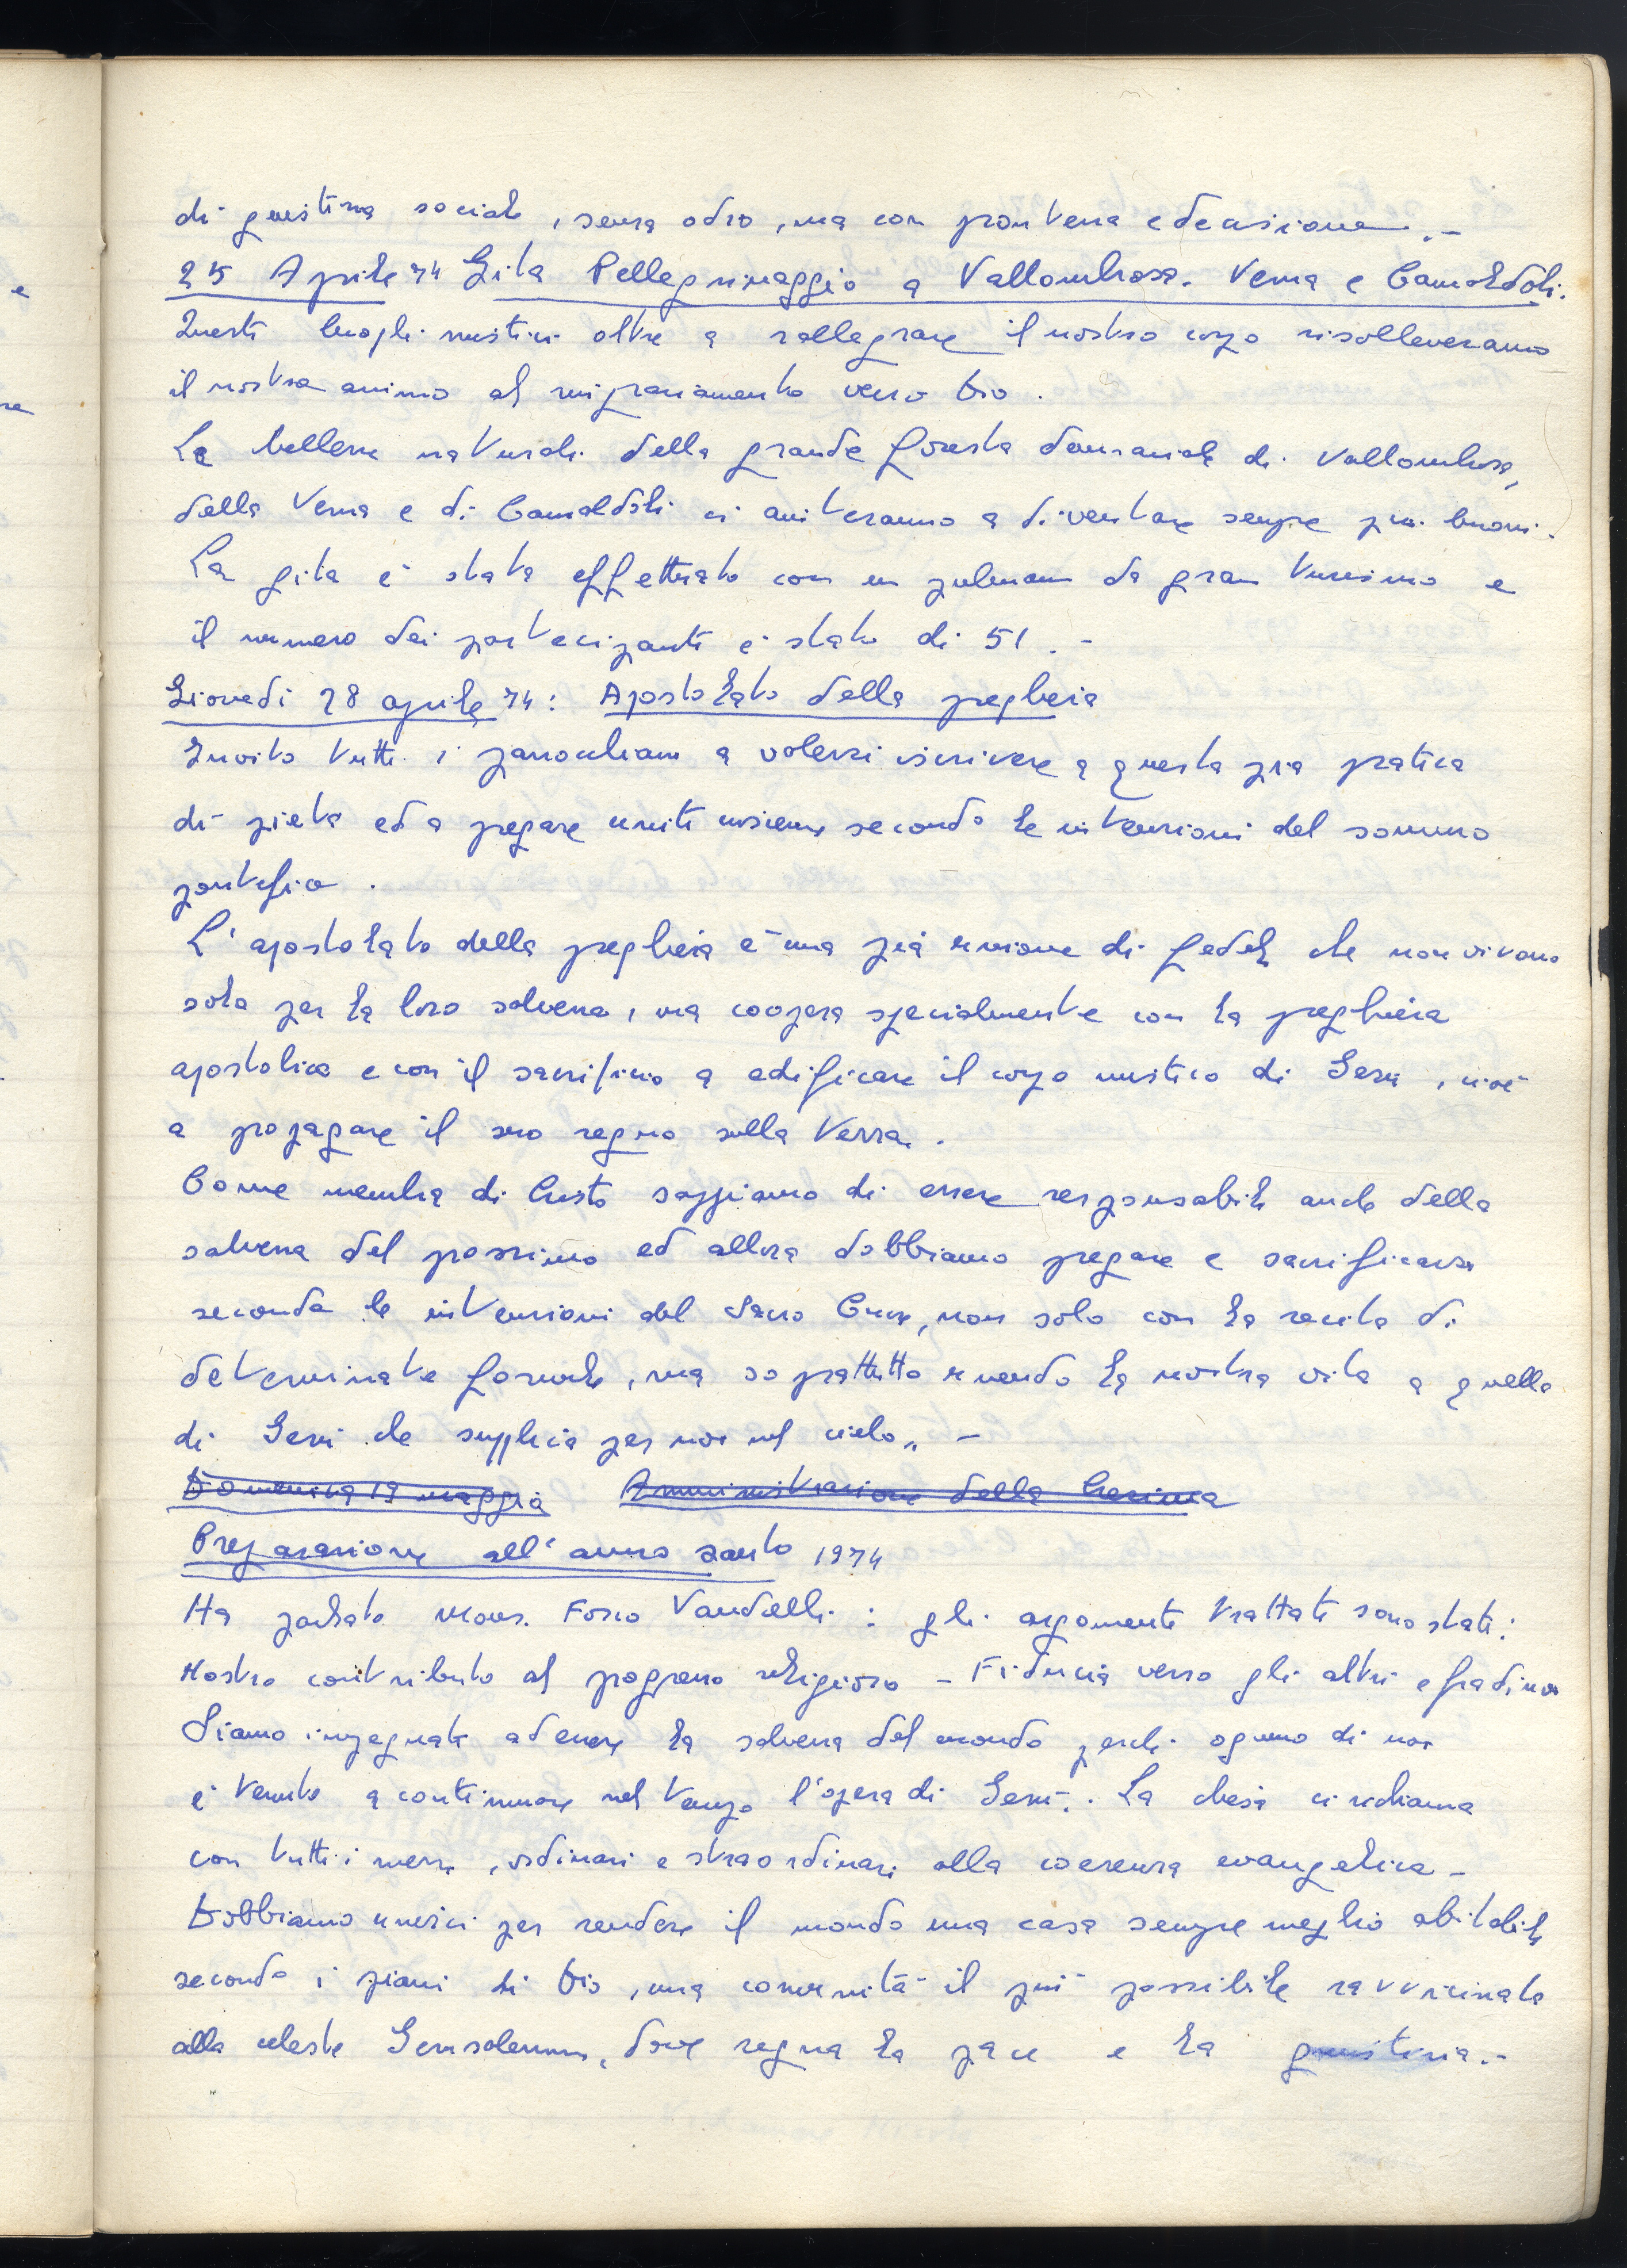 di giustizia sociale, senza odio, ma con prontezza e decisione.-
25 Aprile 74 Gita Pellegrinaggio a Vallombrosa. Verna e Camaldoli.
Questi luoghi mistici oltre a rallegrare il nostro corpo risolleveranno
il nostro animo al ringraziamento verso Dio.
Le bellezze naturali della grande foresta demaniale di Vallombrosa,
della Verna e di Camaldoli ci aiuteranno a diventare sempre più buoni.
La gita è stata effettuata con un pulman da gran turismo e
il numero dei partecipanti è stato di 51.-
Giovedì 28 aprile 74: Apostolato della preghiera
Invito tutti i parrocchiani a volersi iscrivere a questa pia pratica
di pietà ed a pregare uniti insieme secondo le intenzioni del sommo
pontefice.
L'apostolato della preghiera è una pia unione di fedeli che non vivono
solo per la loro salvezza, ma coopera specialmente con la preghiera
apostolica e con il sacrificio a edificare il corpo mistico di Gesù, cioè
a propagare il suo regno sulla terra.
Come membra di Cristo sappiamo di essere responsabili anche della
salvezza del prossimo ed allora dobbiamo pregare e sacrificarsi
secondo le intenzioni del Sacro Cuore, non solo con la recita di
determinate formule, ma soprattutto unendo la nostra vita a quella
di Gesù che supplica per noi nel cielo.. -
Domenica 19 maggio Amministrazione della Cresima
Preparazione all'anno santo 1974
Ha parlato Mons. Fosco Vandelli: gli argomenti trattati sono stati:
Nostro contributo al progresso religioso - Fiducia verso gli altri e
Siamo impegnati ad essere la salvezza del mondo perchè ognuno di noi
è tenuto a continuare nel tempo l'opera di Gesù.. La chiesa ci richiama
con tutti i mezzi, ordinari e straordinari alla coerenza evangelica -
Dobbiamo unirci per rendere il mondo una casa sempre meglio abitabile
secondo i piani di Dio, una comunità il più possibile ravvicinata
alla celeste Gerusalemme, dove regna la pace e la giustizia.-